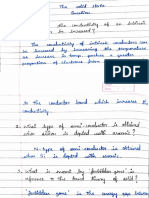 The solid state
Question
the conductivity of an intrinsic
be increased?
The conductivity of intrinsic conductors can
be increased by increasing the temperature
increase in temp. makes a greater
proportion of electrons from
the conductor band which increases the
conductivity
2. What type of semi-conductor is obtained
when is doped with arsenic?
N-type of semi conductor is obtained
when Si is doped with arsenic.
3. What is meant by 'forbidden zone' in
reference to the band theory of solid?
'forbidden zone' is the energy gap between